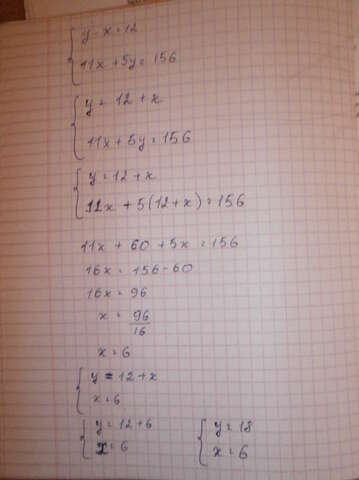 { y - x = 12
11x + 5y = 156
{ y = 12 + x
11x + 5y = 156
{ y = 12 + x
11x + 5(12 + x) = 156
11x + 60 + 5x = 156
16x = 156 - 60
16x = 96
x = 96/16
x = 6
{ y = 12 + x
x = 6
{ y = 12 + 6 { y = 18
x = 6 x = 6